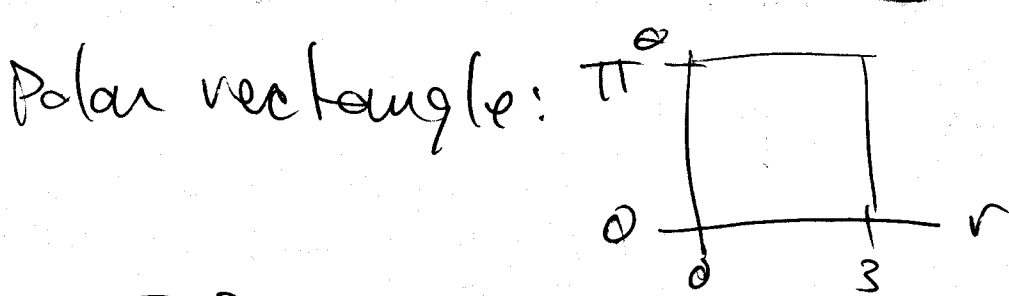 Polar rectangle:
θ
π
0 r
0 3